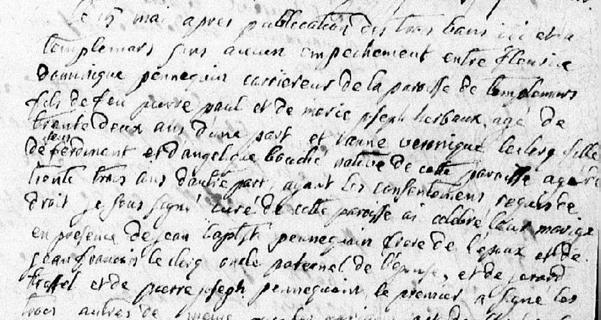 le 15 mai apres publication des trois bans ici et a
templemars sans aucun empechement entre
dominique pennequin carrieur de la paroisse de templemars
fils de feu pierre paul et de marie joseph herbaux age de
trente deux ans d'une part et jeanne veronique leclercq fille
de feu ferdinant et d'angelique bouche native de cette paroisse agee de
trente trois ans d'autre part ayant les consentemens requis de
droit je sous signe curé de cette paroisse ai celebre leur mariage
en presence de jean baptist pennequin frere de l'epoux et de
jean francois le clerq oncle paternel de l'epouse, et de
et de pierre joseph pennequin le premier a signe les
trois autres de